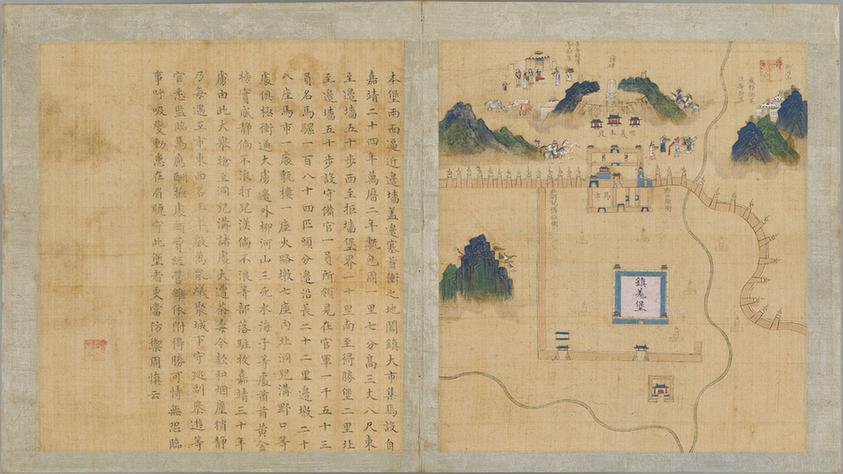 本堡兩面逼近邊墻蓋邊塞首衝之地闔鎮大市集焉設自
嘉靖二十四年萬曆二年甎包周一里七分高三丈八尺東
至邊墻五十步西至拒墻堡界一十里南至得勝堡二里北
至邊墻五十步設守備官一員所領見在官軍一千五十三
員名馬騾一百八十四匹頭分邊沿長二十二里邊墩二十
八座馬市一處甎樓一座火路墩七座內北洞兒溝野口等
處俱極衝通大虜邊外柳河山三死水海子等處酋首黃金
榜實威靜倘不浪打兒漢倘不浪等部落駐牧嘉靖三十年
虜由此大舉搶至洞兒溝諸處大遭荼毒今款烟塵稍靜
乃每遇互市東西名王數萬眾蟻聚城下守巡副參遊等
官悉監臨焉應酬撫處頗經營雖依附得勝可恃無恐臨
事呼吸變動患在眉睫守此堡者更當防禦周慎云
鎮羌堡